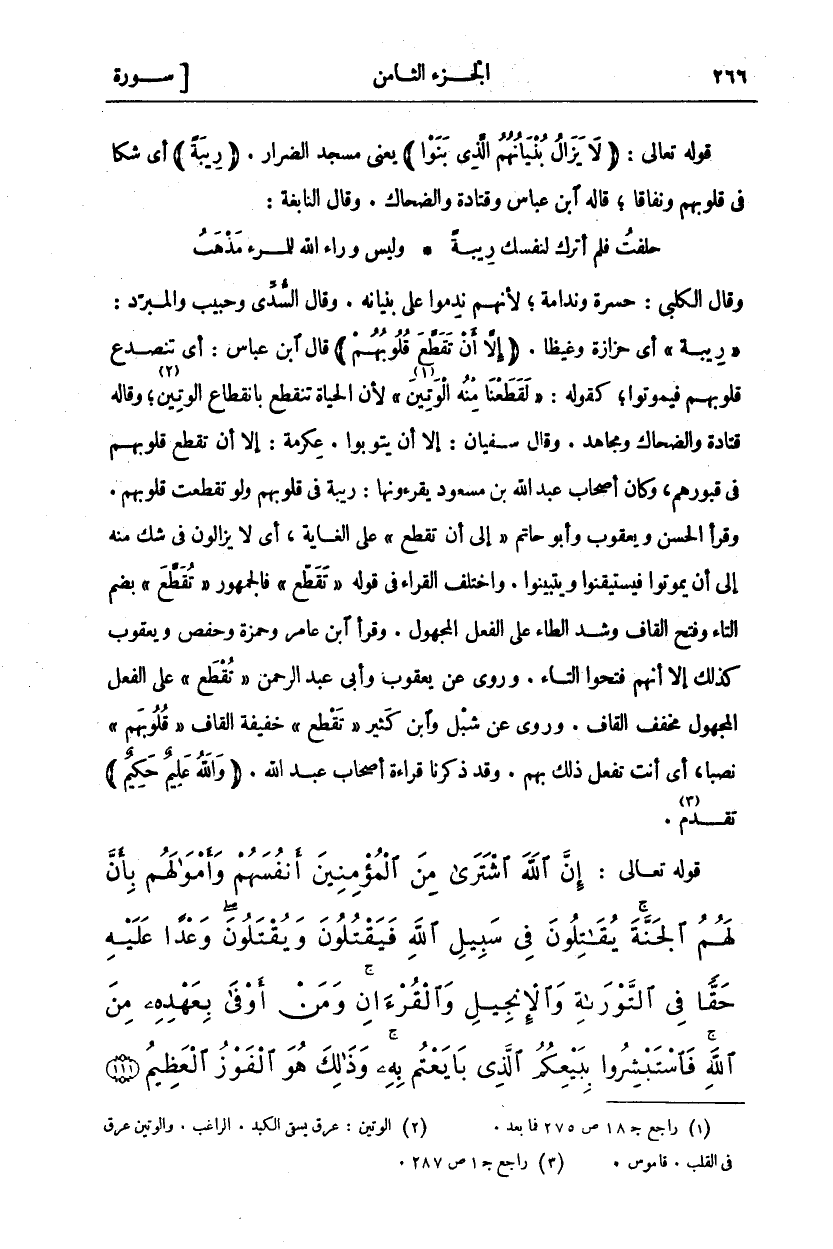 ٢٦٦ الجـزء الثـامن [ ســـورة
قوله تعالى : ﴿ لَا يَزَالُ بُنْيَانُهُمُ الَّذِى بَنَوْا ﴾ يعنى مسجد الضرار . ﴿ رِيبَةً ﴾ أى شكا
فى قلوبهم ونفاقا ؛ قاله آبن عباس وقتادة والضحاك . وقال النابغة :
حلفتُ فلم أترك لنفسك رِيبـةً * وليس وراء الله للـرء مَذْهَبُ
وقال الكلبى : حسرة وندامة ؛ لأنهـم ندِموا على بنيانه . وقال السُّدِّى وحبيب والمـبرّد :
« رِيبـة » أى حزازة وغيظا . ﴿ إِلَّا أَنْ تَقَطَّعَ قُلُوبُهُـمْ ﴾ قال آبن عباس : أى تنصـدع
قلوبهـم فيموتوا؛ كقوله : « لَقَطَعْنَا مِنْهُ الْوَتِينَ (١) » لأن الحياة تنقطع بانقطاع الوتِين (٢)؛ وقاله
قتادة والضحاك ومجاهد . وقال سـفيان : إلا أن يتوبوا . عِكرمة : إلا أن تقطع قلوبهـم
فى قبورهم، وكان أصحاب عبد الله بن مسعود يقرءونها : ريبة فى قلوبهم ولو تقطعت قلوبهم .
وقرأ الحسن ويعقوب وأبو حاتم « إلى أن تقطع » على الغـاية ، أى لا يزالون فى شك منه
إلى أن يموتوا فيستيقنوا ويتبينوا . واختلف القراء فى قوله « تَقَطّع » فالجمهور « تُقَطَّعَ » بضم
التاء وفتح القاف وشـد الطاء على الفعل المجهول . وقرأ آبن عامر وحمزة وحفص ويعقوب
كذلك إلا أنهم فتحوا التـاء . وروى عن يعقوب وأبى عبد الرحمن « تُقْطَع » على الفعل
المجهول مخفف القاف . وروى عن شبْل وآبن كَثير « تَقْطع » خفيفة القاف « قُلُوبَهم »
نصبا، أى أنت تفعل ذلك بهم . وقد ذكرنا قراءة أصحاب عبـد الله . ﴿ وَاللَّهُ عَلِيمٌ حَكِيمٌ ﴾
تقـــدم (٣) .
قوله تعـالى : إِنَّ ٱللَّهَ ٱشْتَرَىٰ مِنَ ٱلْمُؤْمِنِينَ أَنفُسَهُمْ وَأَمْوَٰلَهُم بِأَنَّ
لَهُمُ ٱلْجَنَّةَ ۚ يُقَٰتِلُونَ فِى سَبِيلِ ٱللَّهِ فَيَقْتُلُونَ وَيُقْتَلُونَ ۖ وَعْدًا عَلَيْهِ
حَقًّا فِى ٱلتَّوْرَىٰةِ وَٱلْإِنجِيلِ وَٱلْقُرْءَانِ ۚ وَمَنْ أَوْفَىٰ بِعَهْدِهِۦ مِنَ
ٱللَّهِ ۚ فَٱسْتَبْشِرُوا بِبَيْعِكُمُ ٱلَّذِى بَايَعْتُم بِهِۦ ۚ وَذَٰلِكَ هُوَ ٱلْفَوْزُ ٱلْعَظِيمُ ﴿١١١﴾
(١) راجع جـ ١٨ ص ٢٧٥ فما بعد . (٢) الوتين : عرق يسقى الكبد . الراغب . والوتين عرق
فى القلب . قاموس . (٣) راجع جـ ١ ص ٢٨٧ .